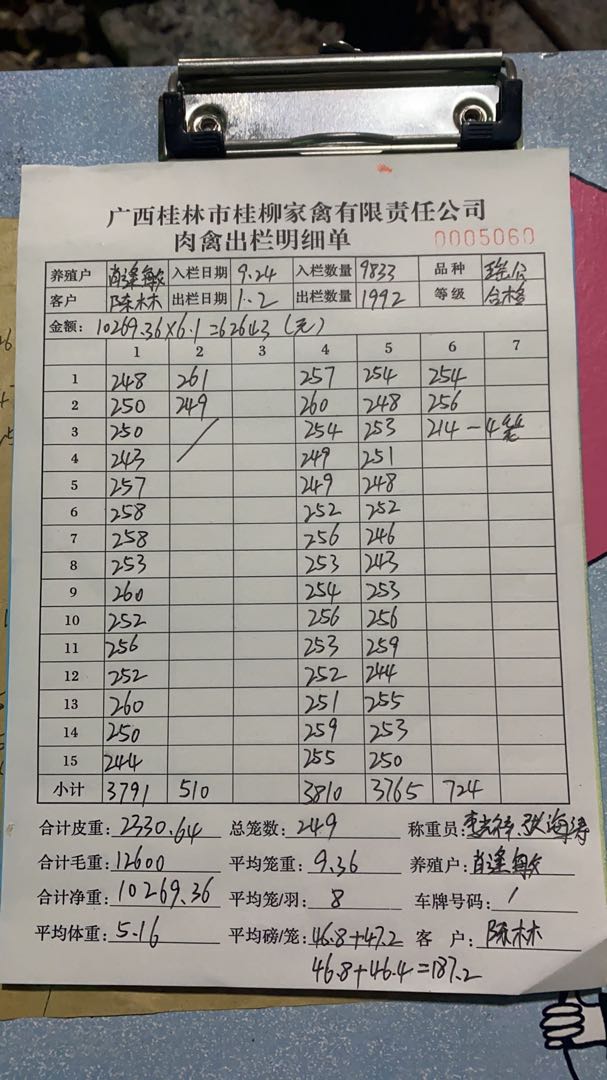 广西桂林市桂柳家禽有限责任公司
肉禽出栏明细单 0005060
养殖户 肖逢敏 入栏日期 9.24 入栏数量 9833 品种 瑶公
客户 陈林林 出栏日期 1.2 出栏数量 1992 等级 合格
金额: 10269.36×6.1=62643(元)
1 2 3 4 5 6 7
1 248 261 257 254 254
2 250 249 260 248 256
3 250 254 253 214-4笼
4 243 249 251
5 257 249 248
6 258 252 252
7 258 256 246
8 253 253 243
9 260 254 253
10 252 256 256
11 256 253 259
12 252 252 244
13 260 251 255
14 250 259 253
15 244 255 250
小计 3791 510 3810 3765 724
合计皮重: 2330.64 总笼数: 249 称重员: 张海涛
合计毛重: 12600 平均笼重: 9.36 养殖户: 肖逢敏
合计净重: 10269.36 平均笼/羽: 8 车牌号码: /
平均体重: 5.16 平均磅/笼: 46.8+47.2 客户: 陈林林
46.8+46.4=187.2